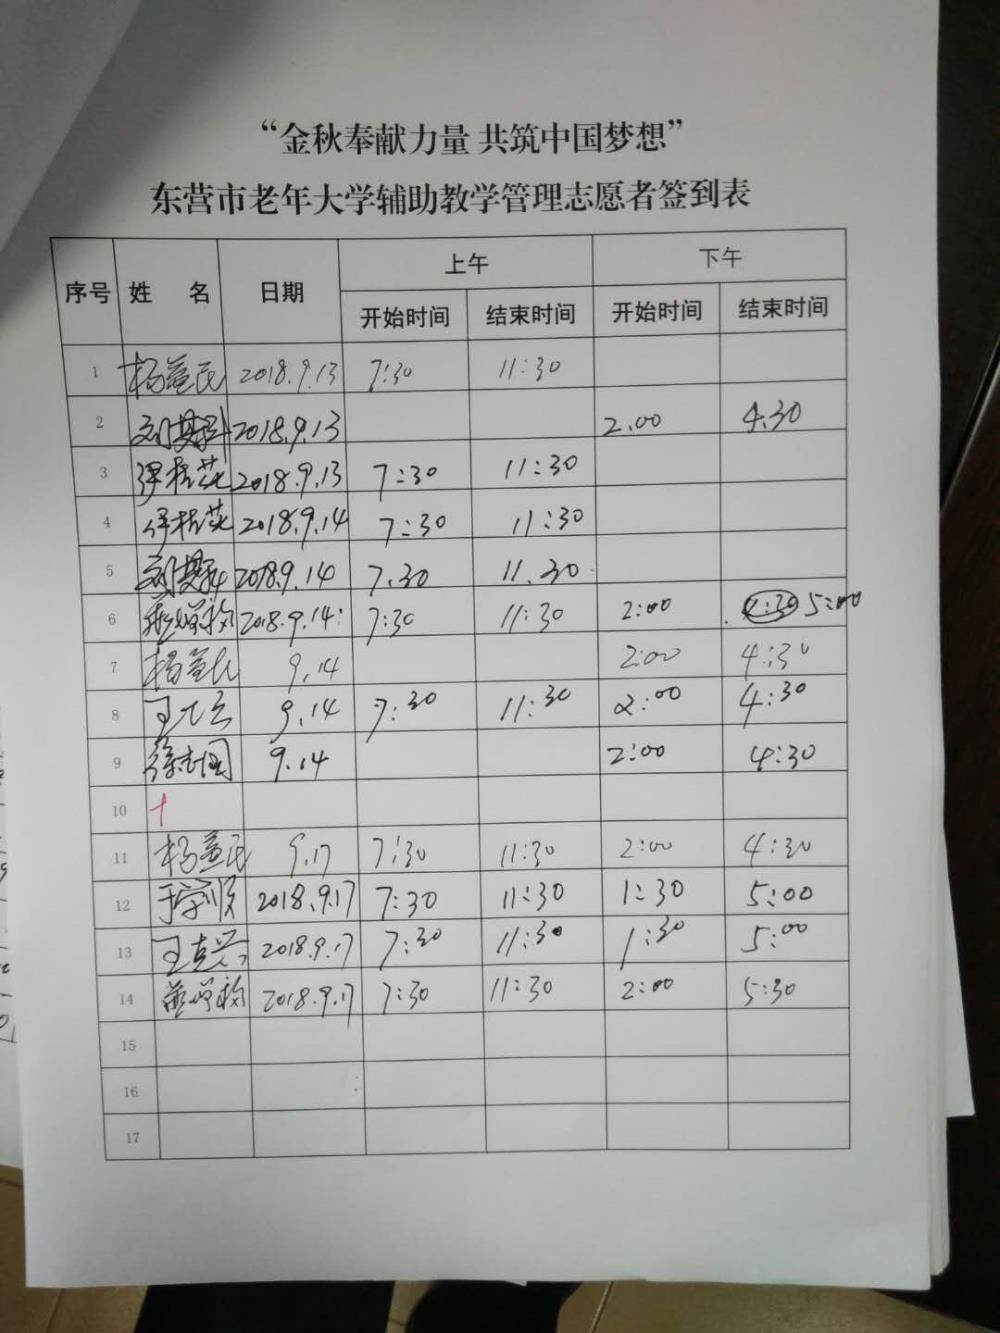 “金秋奉献力量 共筑中国梦想”
东营市老年大学辅助教学管理志愿者签到表
序号 姓 名 日期 上午 下午
开始时间 结束时间 开始时间 结束时间
1 杨益民 2018.9.13 7:30 11:30
2 2018.9.13 2.00 4.30
3 桂花 2018.9.13 7:30 11:30
4 桂花 2018.9.14 7:30 11:30
5 2018.9.14 7.30 11.30
6 2018.9.14 7:30 11:30 2:00 5:00
7 杨益民 9.14 2:00 4:30
8 王 9.14 7:30 11:30 2:00 4:30
9 徐志国 9.14 2:00 4:30
10
11 杨益民 9.17 7:30 11:30 2:00 4:30
12 2018.9.17 7:30 11:30 1:30 5:00
13 王 2018.9.17 7:30 11:30 1:30 5:00
14 2018.9.17 7:30 11:30 2:00 5:30
15
16
17